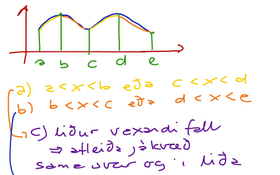 a b c d e
a) a < x < b eða c < x < d
b) b < x < c eða d < x < e
c) liður vexandi fall
⇒ afleiða jákvæð
sama svar og í lið a